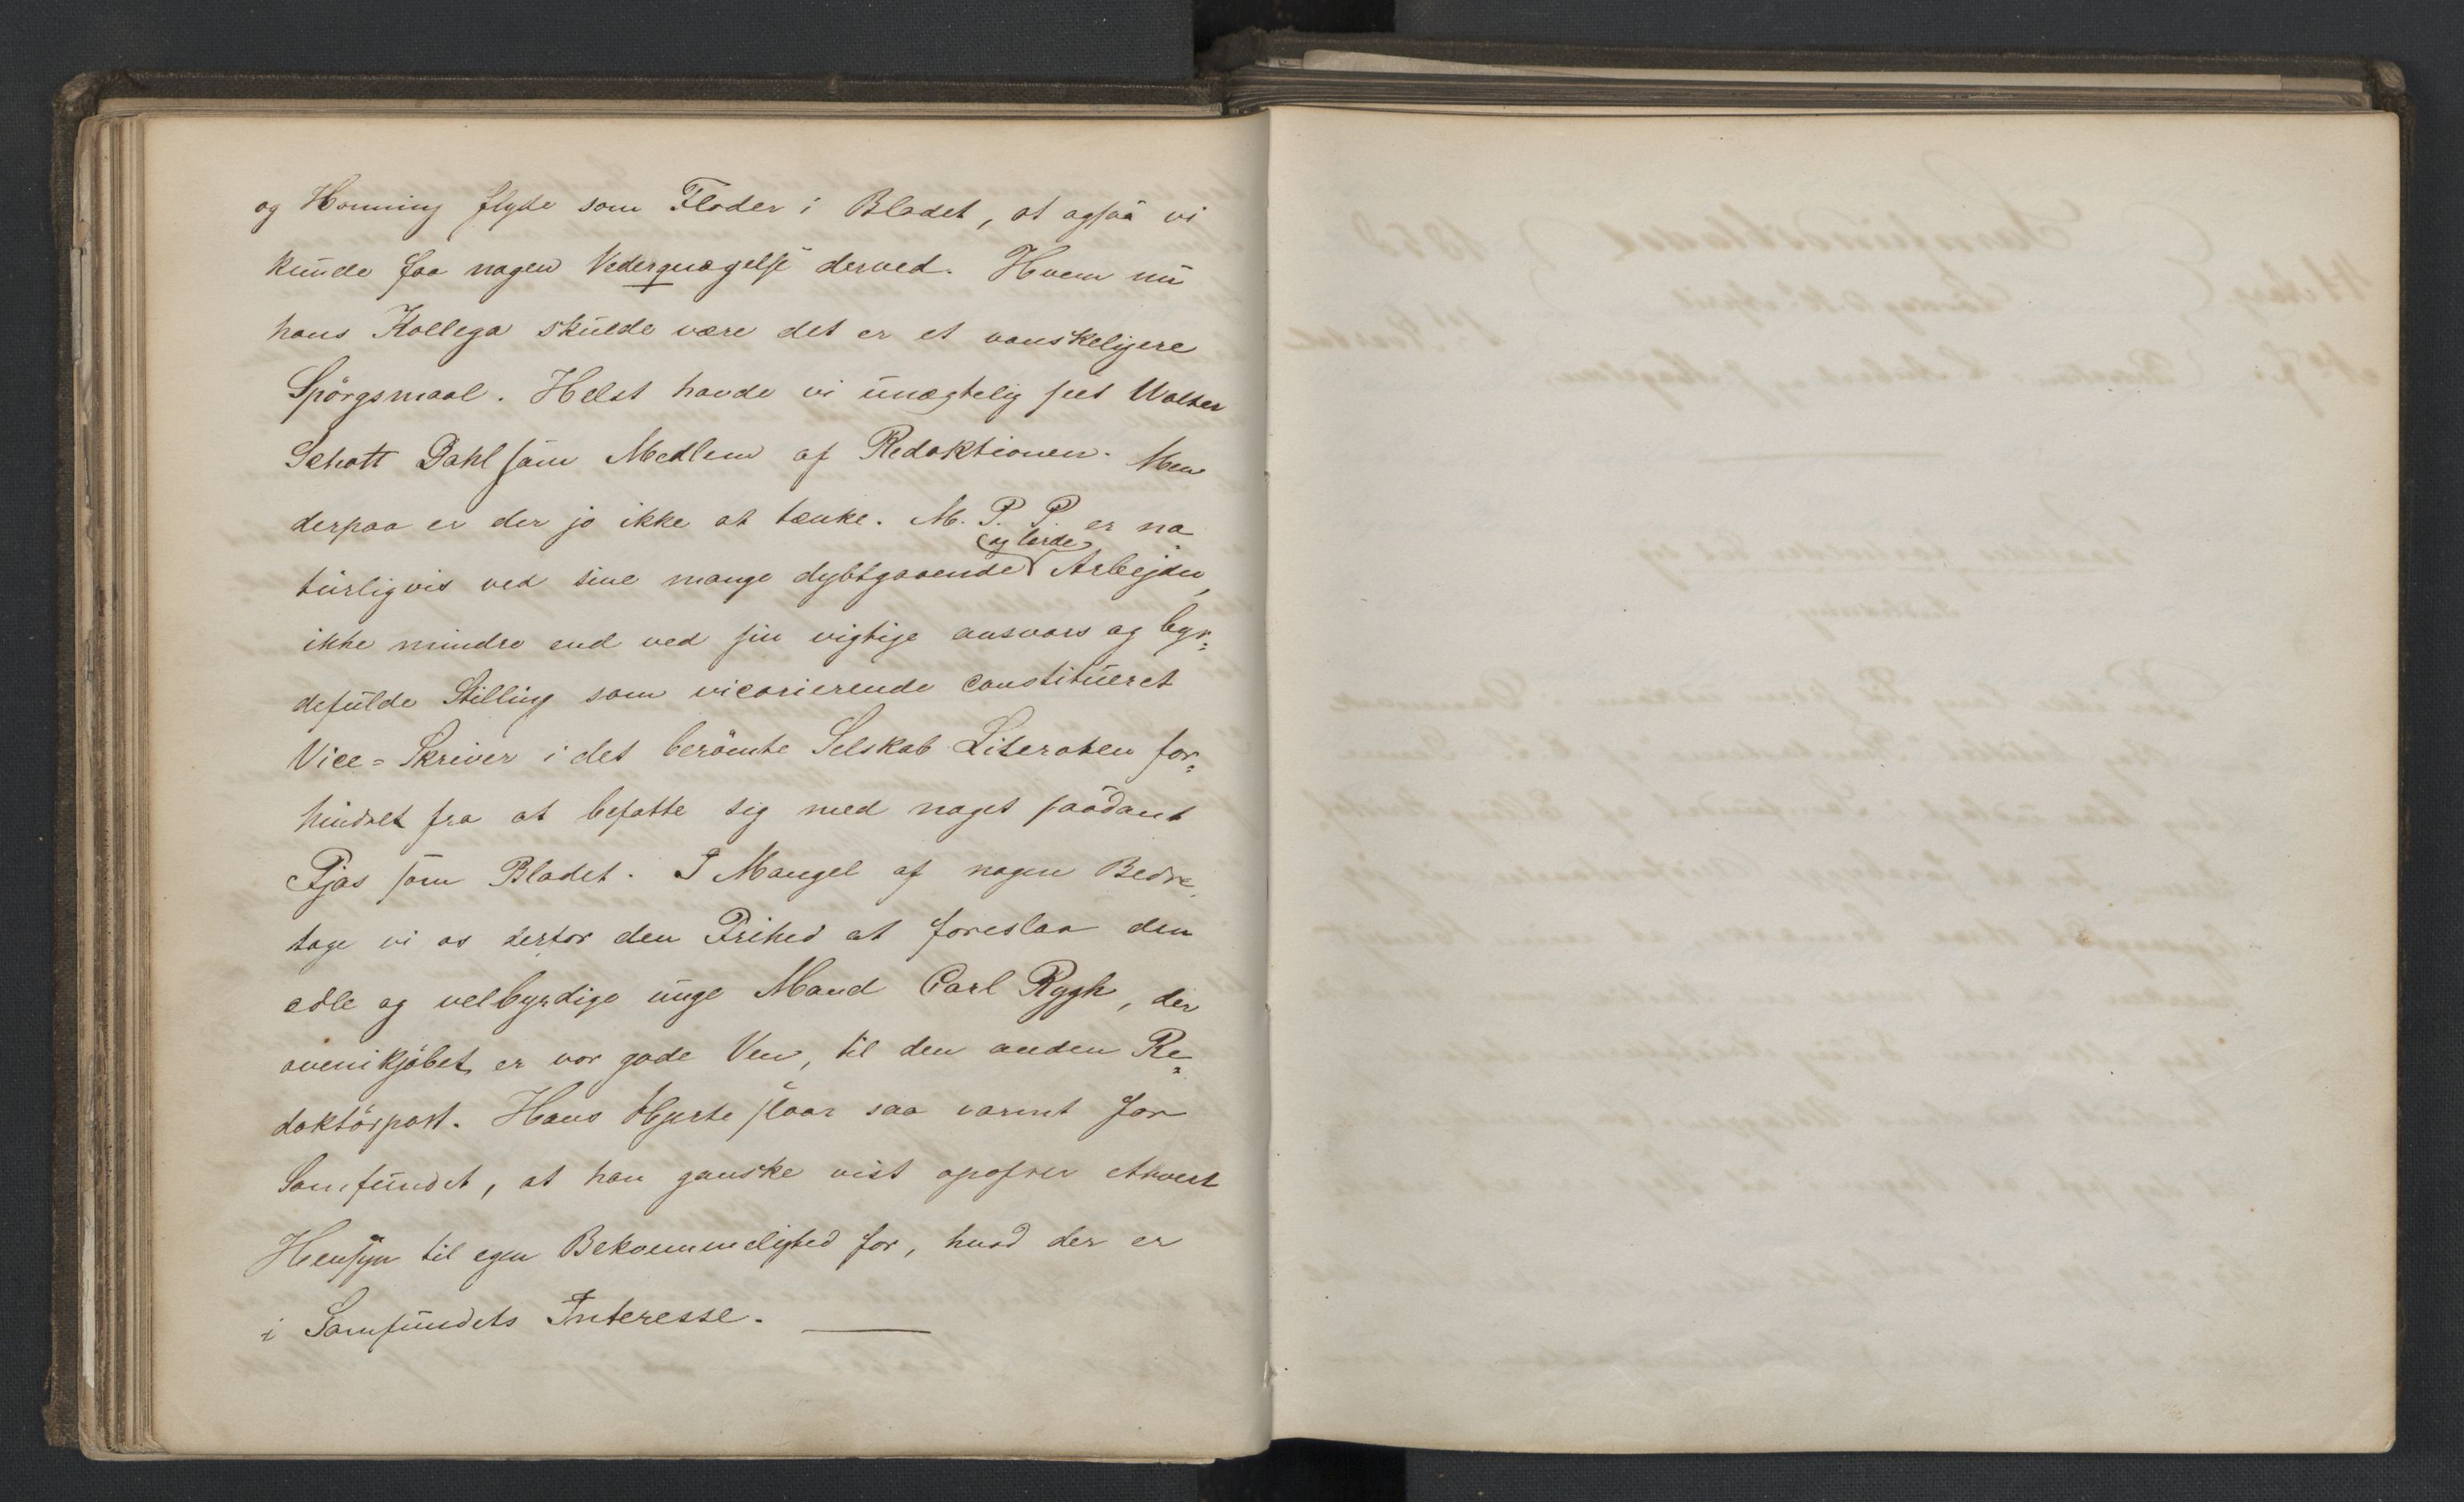 og Honning flyde som Floder i Bladet, at ogsaa vi
kunde faa nogen Vederqvægelse derved. Hvem nu
hans Kollega skulde være det er et vanskeligere
Spörgsmaal. Helst havde vi unægtelig seet Walter
Schott Dahl som Medlem af Redaktionen. Men
derpaa er der jo ikke at tænke. M. P. P. er na-
(og lærde)
turligvis ved sine mange dybtgaaende Arbejder,
ikke mindre end ved sin vigtige ansvars og byr=
defulde Stilling som vicarierende constitueret
Vice=Skriver i det berömte Selskab Literaten for=
hindret fra at befatte sig med noget saadant
Pjas som Bladet. I Mangel af nogen Bedre,
tage vi os derfor den Frihed at foreslaa den
ædle og velbyrdige unge Mand Carl Rygh, der
ovenikjöbet er vor gode Ven, til den anden Re=
daktörpost. Hans Hjerte slaar saa varmt for
Samfundet, at han ganske vist opofrer ethvert
Hensyn til egen Bekvemmelighed for, hvad der er
i Samfundets Interesse. —